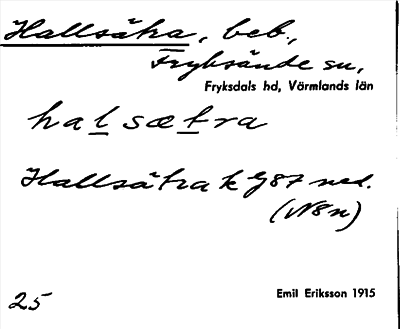 Hallsätra, beb.,
Fryksände sn,
Fryksdals hd, Värmlands län
halsætra
Hallsätra k G87 ned.
(N8n)
25
Emil Eriksson 1915